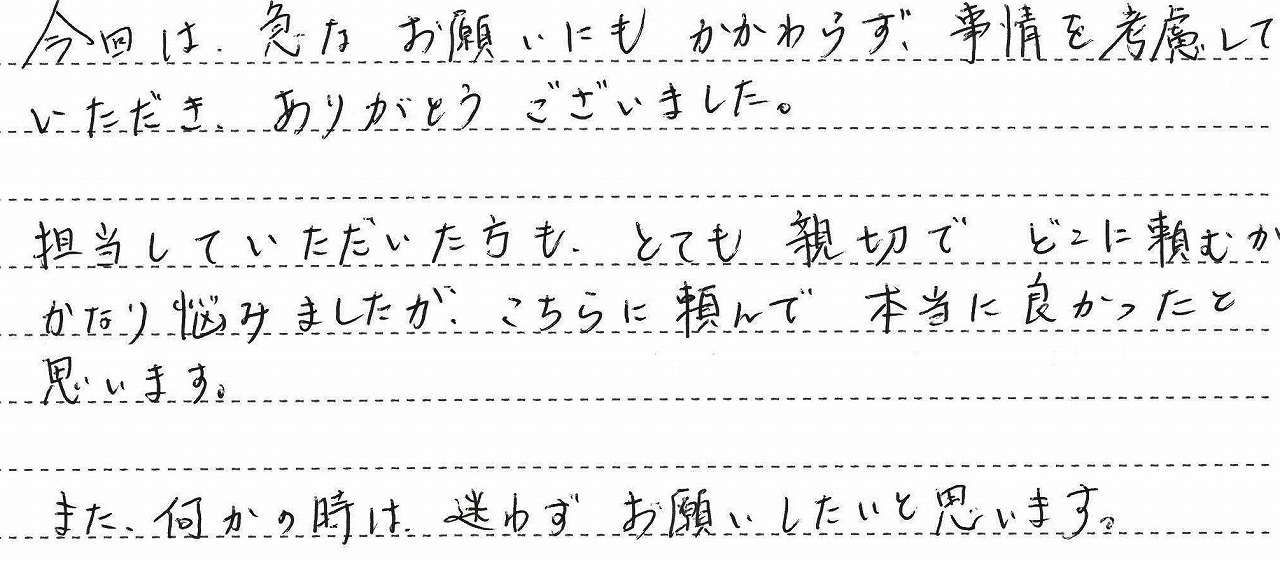 今回は、急な お願いにも かかわらず、事情を考慮して
いただき、ありがとう ございました。
担当していただいた方も、とても 親切で どこに頼むか
かなり悩みましたが、こちらに頼んで 本当に良かったと
思います。
また、何かの時は、迷わず お願いしたいと思います。